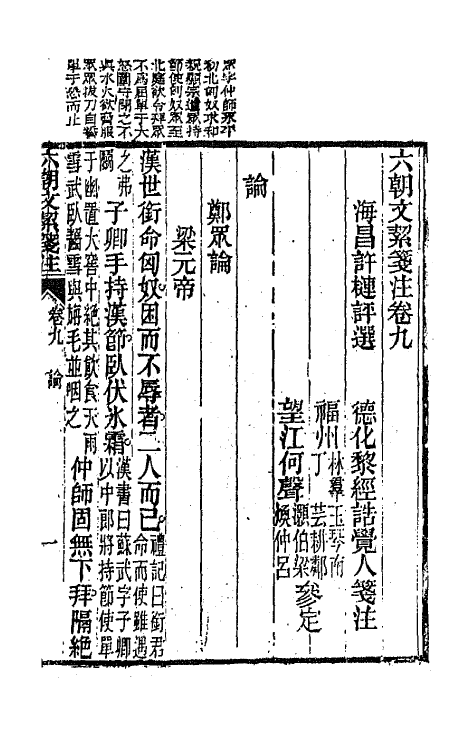 六朝文絜箋注卷九
海昌許槤評選　德化黎經誥覺人箋注
福州林羣玉琴南
福州丁芸耕鄰
望江何聲灝伯梁
煥仲呂
參定
論
鄭眾論
梁元帝
漢世銜命匈奴困而不辱者二人而已禮記曰銜君命而使雖遇
之弗鬭子卿手持漢節臥伏冰霜漢書曰蘇武字子卿以中郎將持節使單
于幽置大窖中絕其飲食天雨雪武臥齧雪與旃毛並咽之仲師固無下拜隔絕
六朝文絜箋注　卷九　論　一
眾字仲師永平
初北匈奴求和
親顯宗遣眾持
節使匈奴眾至
北庭欲令拜眾
不為屈單于大
怒圍守閉之不
與水火欲脅服
眾眾拔刀自誓
單于恐而止